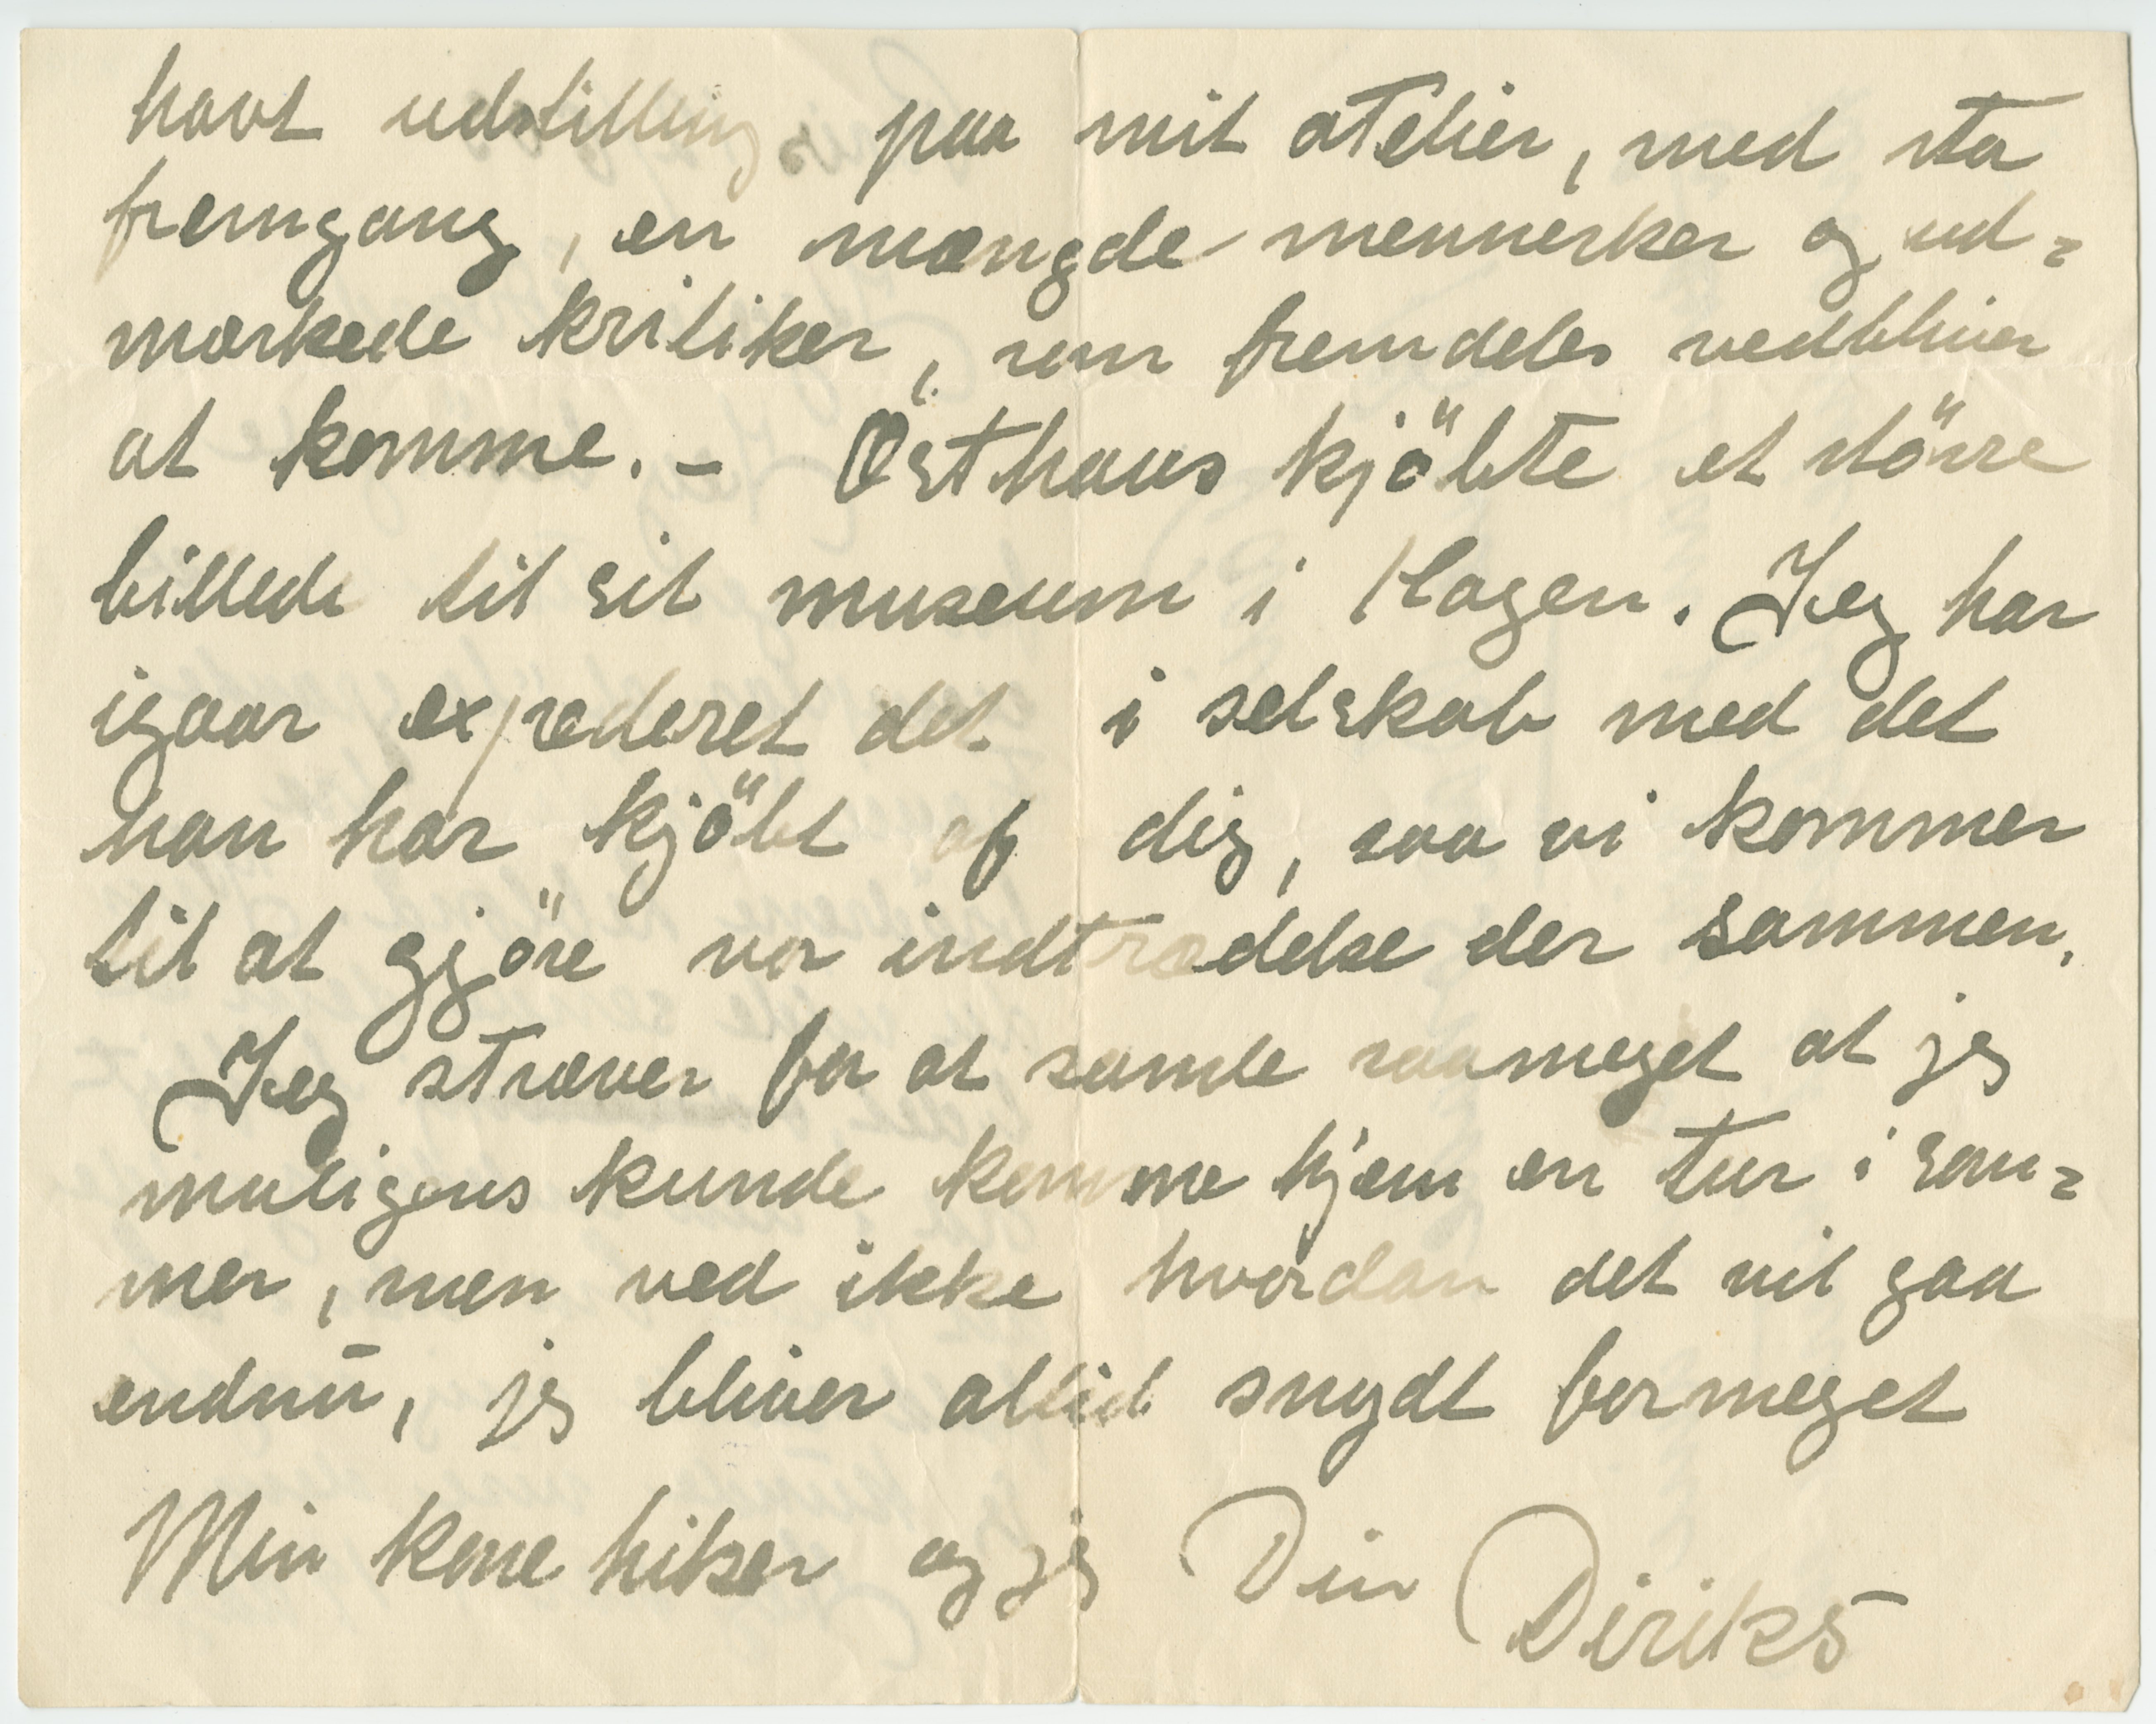 havt udstilling paa mit atelier, med stor
fremgang, en mængde mennesker og ud=
mærkede kritiker, som fremdeles vedbliver
at komme. – Östhaus kjöbte et större
billede til sit museum i Hagen. Jeg har
igaar expederet det i selskab med det
han har kjöbt af dig, saa vi kommer
til at gjöre vor indtrædelse der sammen.
Jeg stræver for at samle saameget at jeg
muligens kunde komme hjem en tur i som=
mer, men ved ikke hvordan det vil gaa
endnū, jeg bliver altid snydt formeget
Min kone hilser og jeg Din Diriks